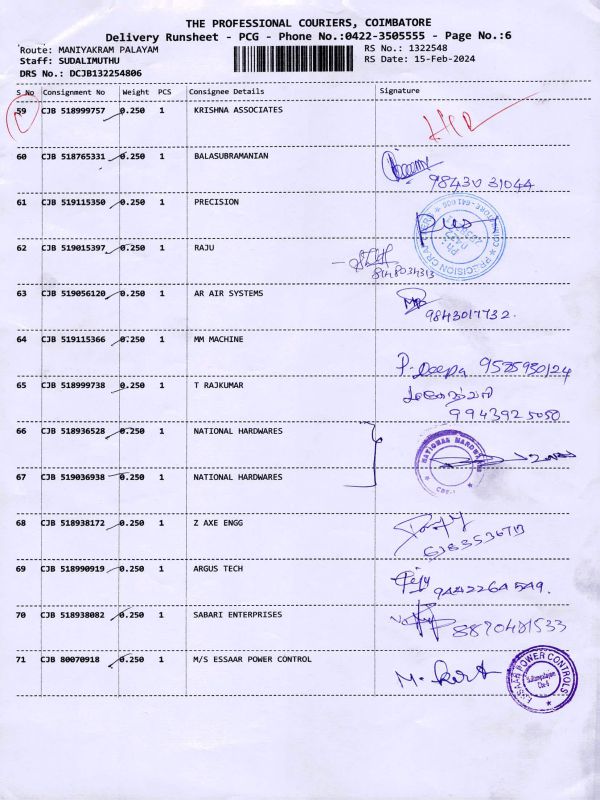 THE PROFESSIONAL COURIERS, COIMBATORE
Delivery Runsheet - PCG - Phone No.:0422-3505555 - Page No.:6
Route: MANIYAKRAM PALAYAM RS No.: 1322548
Staff: SUDALIMUTHU RS Date: 15-Feb-2024
DRS No.: DCJB132254806
S No Consignment No Weight PCS Consignee Details Signature
59 CJB 518999757 0.250 1 KRISHNA ASSOCIATES
60 CJB 518765331 0.250 1 BALASUBRAMANIAN
98430 31044
61 CJB 519115350 0.250 1 PRECISION
62 CJB 519015397 0.250 1 RAJU
63 CJB 519056120 0.250 1 AR AIR SYSTEMS
9843017732.
64 CJB 519115366 0.250 1 MM MACHINE
P. Deepa 9585930124
65 CJB 518999738 0.250 1 T RAJKUMAR
9943925050
66 CJB 518936528 0.250 1 NATIONAL HARDWARES
NATIONAL HARDWARES
CBE-
67 CJB 519036938 0.250 1 NATIONAL HARDWARES
68 CJB 518938172 0.250 1 Z AXE ENGG
69 CJB 518990919 0.250 1 ARGUS TECH
9442264549.
70 CJB 518938082 0.250 1 SABARI ENTERPRISES
8870481533
71 CJB 80070918 0.250 1 M/S ESSAAR POWER CONTROL
ESSAAR POWER CONTROLS